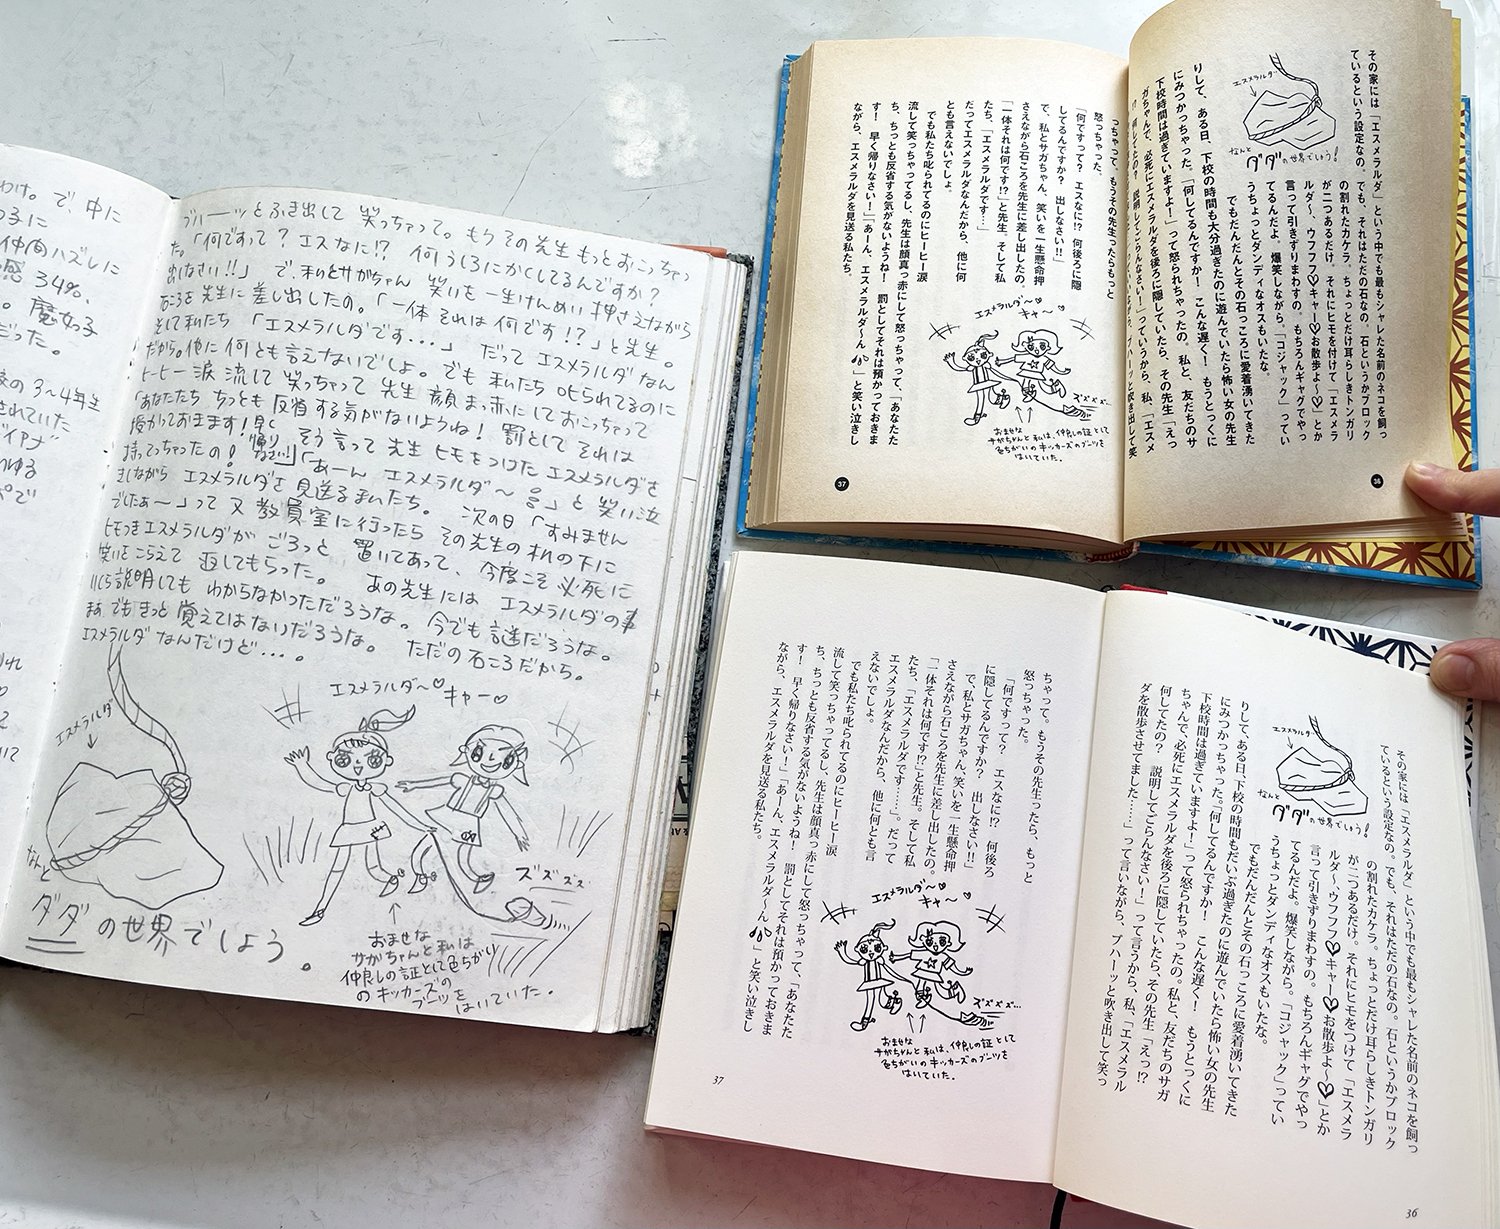 わけ。で、中に
仲間ハズレに
感 34%、
魔女っ子
だった。
校の3~4年生
されていた
ブハーーッとふき出して 笑っちゃって。もう その先生 もっとおこっちゃっ
た。「何ですって？ エスなに!? 何うしろにかくしてるんですか？
出しなさい!!」 で、私とサガちゃん 笑いを一生けんめい 押さえながら
石ころを先生に差し出したの。「一体 それは 何です！？」と先生。
そして私たち 「エスメラルダです・・・・」 だって エスメラルダ なん
だから。他に 何とも 言えないでしょ。でも 私たち 叱られてるのに
ヒーヒー 涙 流して 笑っちゃって 先生 顔 まっ赤にして おこっちゃって
「あなたたち ちっとも 反省する気がないようね！ 罰として それは
預かっておきます！早く
帰りなさい!」
そう言って 先生 ヒモをつけた エスメラルダを
持ってっちゃったの！ 「あーん エスメラルダ〜 」と 笑い泣
きしながら エスメラルダを 見送る私たち。 次の日 「すみません
でしたぁ〜」って 又 教員室に行ったら その先生の 机の下に
ヒモつきエスメラルダが ごろっと 置いてあって、今度こそ 必死に
笑いをこらえて 返してもらった。 あの先生には エスメラルダの事
いくら説明しても わからなかっただろうな。 今でも 謎だろうな。
まぁ でも きっと 覚えてはないだろうな。 ただの石ころだから。
エスメラルダ なんだけど・・・。
エスメラルダ
なんと
ダダの世界でしょう。
エスメラルダ〜♡ キャー♡
ズズズズ
おませな
サガちゃんと私は
仲良しの証として色ちがい
のキッカーズの
ブーツを
はいていた。
その家には「エスメラルダ」という中でも最もシャレた名前のネコを飼っ
ているという設定なの。でも、それはただの石なの。石というかブロック
の割れたカケラ。ちょっとだけ耳らしきトンガリ
が二つあるだけ。それにヒモを付けて「エスメラ
ルダ〜、ウフフフ♡キャー♡お散歩よ〜♡」とか
言って引きずりまわすの。もちろんギャグでやっ
てるんだよ。爆笑しながら。「コジャック」ってい
うちょっとダンディなオスもいたな。
でもだんだんとその石っころに愛着湧いてきた
りして、ある日、下校の時間も大分過ぎたのに遊んでいたら怖い女の先生
にみつかっちゃった。「何してるんですか！ こんな遅く！ もうとっくに
下校時間は過ぎていますよ！」って怒られちゃったの。私と、友だちのサ
ガちゃんで、必死にエスメラルダを後ろに隠していたら、その先生「えっ
エスメラルダ
なんと
ダダの世界でしょう!
36
っちゃって、もうその先生ったらもっと
怒っちゃった。
「何ですって？ エスなに!? 何後ろに隠
してるんですか？ 出しなさい!!」
で、私とサガちゃん、笑いを一生懸命押
さえながら石ころを先生に差し出したの。
「一体それは何です!?」と先生。そして私
たち、「エスメラルダです…」
だってエスメラルダなんだから、他に何
とも言えないでしょ。
でも私たち叱られてるのにヒーヒー涙
流して笑っちゃってるし、先生は顔真っ赤にして怒っちゃって、「あなたた
ち、ちっとも反省する気がないようね！ 罰としてそれは預かっておきま
す！ 早く帰りなさい！」「あーん、エスメラルダ〜ん」と笑い泣きし
ながら、エスメラルダを見送る私たち。
エスメラルダ〜♡
キャ〜♡
ズズズズ…
おませな
サガちゃんと私は、仲良しの証として
色ちがいのキッカーズのブーツを
はいていた。
37
その家には「エスメラルダ」という中でも最もシャレた名前のネコを飼っ
ているという設定なの。でも、それはただの石なの。石というかブロック
の割れたカケラ。ちょっとだけ耳らしきトンガリ
が二つあるだけ。それにヒモをつけて「エスメラ
ルダ〜、ウフフフ♡キャー♡お散歩よ〜♡」とか
言って引きずりまわすの。もちろんギャグでやっ
てるんだよ。爆笑しながら。「コジャック」ってい
うちょっとダンディなオスもいたな。
でもだんだんとその石っころに愛着湧いてきた
りして、ある日、下校の時間もだいぶ過ぎたのに遊んでいたら怖い女の先生
にみつかっちゃった。「何してるんですか！ こんな遅く！ もうとっくに
下校時間は過ぎていますよ！」って怒られちゃったの。私と、友だちのサガ
ちゃんで、必死にエスメラルダを後ろに隠していたら、その先生「えっ!?
何してたの？ 説明してごらんなさい！」って言うから、私、「エスメラル
ダを散歩させてました……」って言いながら、ブハーッと吹き出して笑っ
エスメラルダ
なんと
ダダの世界でしょう!
36
ちゃって。もうその先生ったら、もっと
怒っちゃった。
「何ですって？ エスなに!? 何後ろ
に隠してるんですか？ 出しなさい!!」
で、私とサガちゃん、笑いを一生懸命押
さえながら石ころを先生に差し出したの。
「一体それは何です!?」と先生。そして私
たち、「エスメラルダです……」。だって
エスメラルダなんだから、他に何とも言
えないでしょ。
でも私たち叱られてるのにヒーヒー涙
流して笑っちゃってるし、先生は顔真っ赤にして怒っちゃって、「あなたた
ち、ちっとも反省する気がないようね！ 罰としてそれは預かっておきま
す！ 早く帰りなさい！」「あーん、エスメラルダ〜ん」と笑い泣きし
ながら、エスメラルダを見送る私たち。
エスメラルダ〜♡
キャ〜♡
ズズズズ…
おませな
サガちゃんと私は、仲良しの証として
色ちがいのキッカーズのブーツを
はいていた。
37